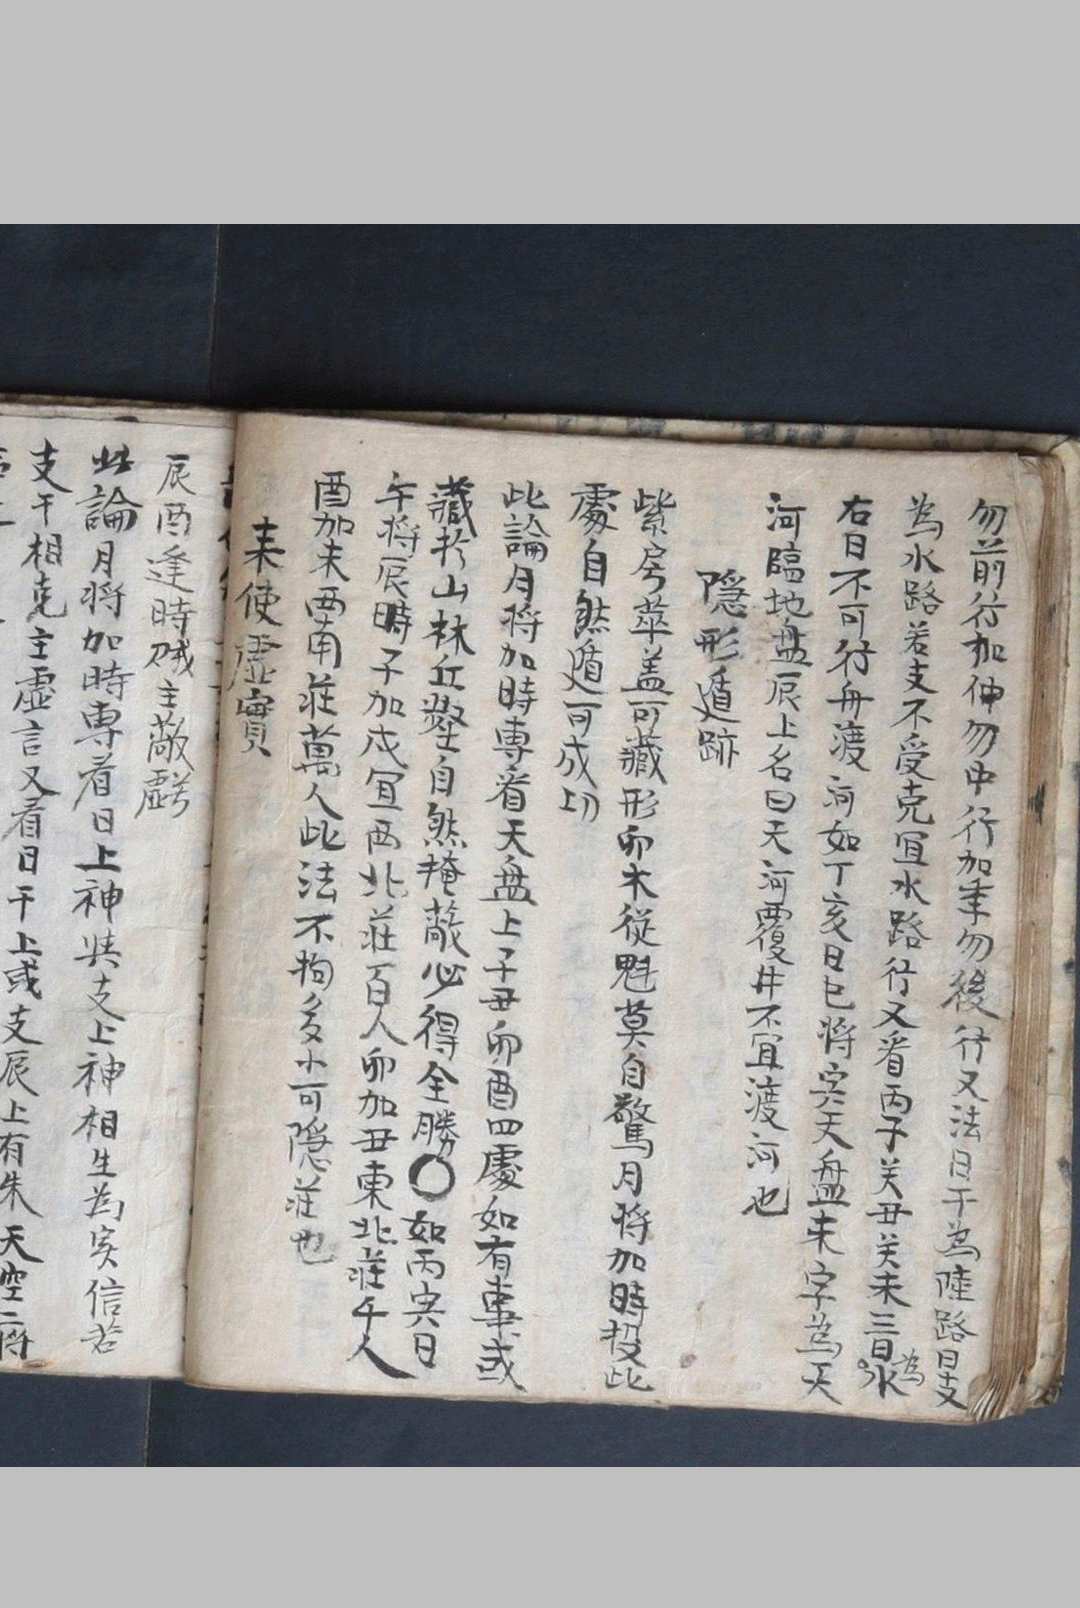 勿前行加仲勿中行加季勿後行又法日干為陸路日支
為水路若支不受克宜水路行又看丙子癸丑癸未三日為水
右日不可行舟渡河如丁亥日巳將寅天盤未字為天
河臨地盤辰上名曰天河覆井不宜渡河也
隱形遁跡
紫房華盖可藏形卯木從魁莫自驚月將加時投此
處自然遁可成功
此論月將加時專看天盤上子丑卯酉四處如有事或
藏於山林丘壑自然掩蔽必得全勝〇如丙寅日
午將辰時子加戌宜西北莊百人卯加丑東北莊千人
酉加未西南莊萬人此法不拘多小可隱莊也
來使虛實
辰酉逢時賊主敵虧
此論月將加時專看日上神與支上神相生為實信若
支干相克主虛言又看日干上或支辰上有朱天空二將